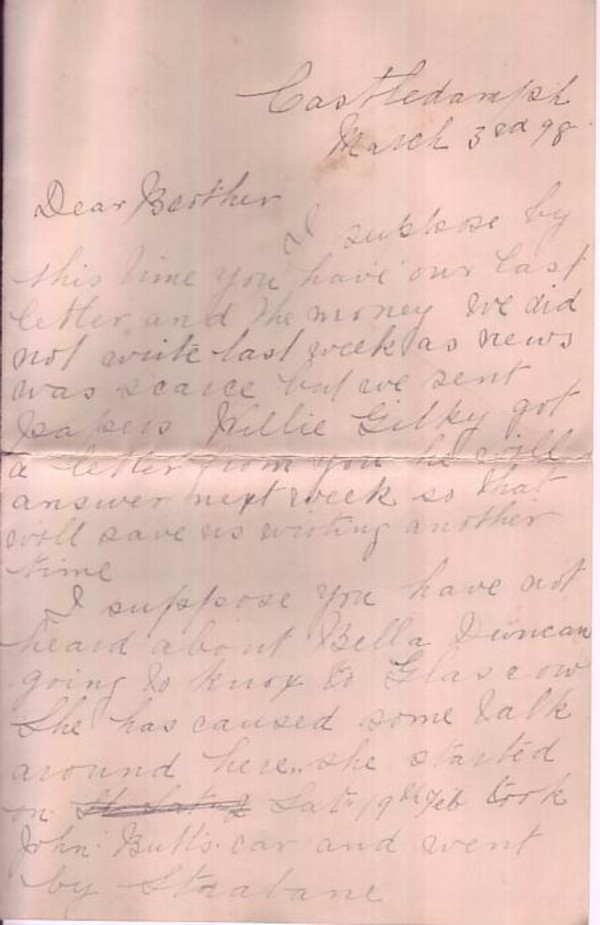 Castledamph
March 3rd 98
Dear Brother
I suppose by
this time you have our last
letter and the money we did
not write last week as news
was scarce but we sent
papers Willie Gilky got
a letter from you he will
answer next week so that
will save us writing another
time
I suppose you have not
heard about Bella Duncan
going to knox to Glascow
She has caused some talk
around here.. she started
on Sat 19th Feb took
John Butts car and went
by Strabane